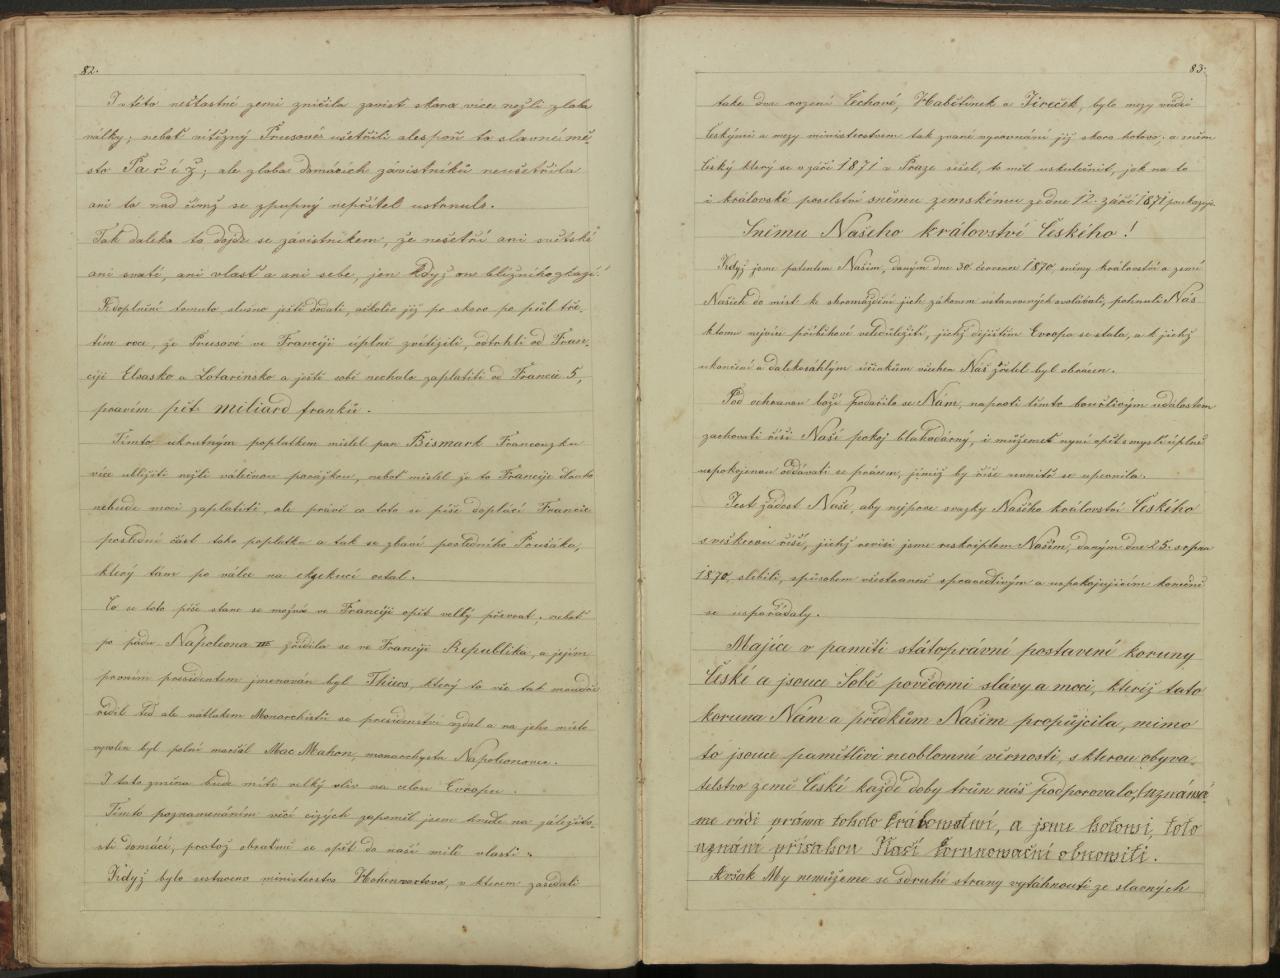 82.
I v této nešťastné zemi zničila závist skoro více nežli zloba
války; neboť vítězný Prusové ušetřili alespoň to slavné mě-
sto Paříž; ale zloba domácích závistníků neušetřila
ani to nad čímž se zpupný nepřítel ustrnul.
Tak daleko to dojde se závistníkem, že nešetří ani světské
ani svaté, ani vlast a ani sebe, jen když on bližního zkazí!
K doplnění tomuto, slušno ještě dodati, ačkoliv již po skoro po půl tře-
tím roce, že Prusové ve Franciji úplně zvítězili, odtrhli od Fran-
ciji Elsasko a Lotarinsko a ještě sobě nechalo zaplatiti od Francie 5,
pravím pět miliard franků.
Tímto ukrutným poplatkem mislel pan Bismark Francouzku
více ublížiti nežli válečnou porážkou, neboť mislel že to Francije tak
nebude moci zaplatiti, ale právě co toto se píše doplácí Francie
poslední část toho poplatku a tak se zbaví posledního Prušáka,
který tam po válce na ekzekuci ostal.
Co se toto píše stane se možná ve Franciji opět velký převrat; neboť
po pádu Napoleona III zřídila se ve Franciji Republika, a jejím
prvním presidentem jmenován byl Thiers, který to vše tak moudře
řídil teď ale nátlakem Monarchistů se presidenství vzdal a na jeho místo
vyvolen byl polní maršál Mac Mahon, monarchysta Napoleonovec.
I tato změna bude míti velký vliv na celou Evropu.
Tímto poznamenáním věcí cizých zapoměl jsem trude na záležito-
sti domácí, protož obratme se opět do naší milé vlasti.
Když bylo sestaveno ministerstvo Hohenwartovo, v kterém zasedali
83.
take dva rození Čechové, Habětínek a Jireček, bylo mezy vůdci
Českými a mezy ministerstvem tak zvané vyrovnání již skoro hotovo; a sněm
český který se v září 1871 v Praze sešel, to měl uskutečnit, jak na to
i královské poselství sněmu zemskému ze dne 12. září 1871 poukazuje.
Sněmu Našeho království Českého!
Když jsme patentem Našim, daným dne 30 července 1870, sněmy království a zemí
Našich do míst k shromáždění jich zákonem ustanovených svolávali, pohnuli Nás
ktomu nejvíce příběhové veledůležití, jichž dějištěm Evropa se stala, a k jichž
ukončení a dalekosáhlým účinkům všechen Náš zřetel byl obrácen.
Pod ochranou boží podařilo se Nám, naproti tímto bouřlivým událostem
zachovati říši Naší pokoj blahodárný, i můžemeť nyní opět s myslí úplně
uspokojenou oddávati se pracem, jimiž by říše uvnitř se upevnila.
Jest žádost Naše, aby nejprve svazky Našeho království Českého
s veškerou říší, jichž revisi jsme reskriptem Našim, daným dne 25. srpna
1870, slíbili, způsobem všestranně spravedlivým a uspokojujícím konečně
se uspořádaly.
Majíce v paměti státoprávní postavení koruny
České a jsouce Sobě povědomi slávy a moci, kteréž tato
koruna Nám a předkům Našim propůjčila, mimo
to jsouce pamětlivi neoblomné věrnosti, s kterou obyva-
telstvo země České každé doby trůn náš podporovalo, uznává-
me rádi práva tohoto království, a jsme hotowi, toto
uznání přísahou Naší korunowační obnowiti.
Avšak My nemůžeme se sdruhé strany vytáhnouti ze slavných